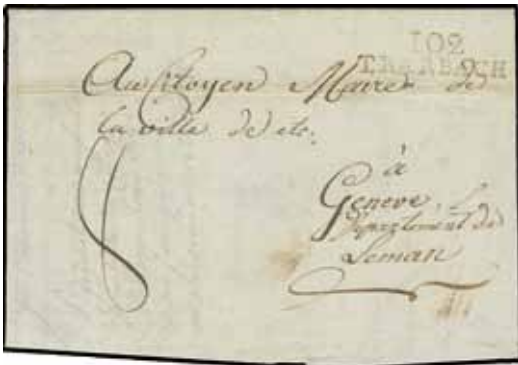 102
TRARBACH
Au Citoyen Maire de
la ville de etc.
à
Geneve,
Departement de
Leman
8